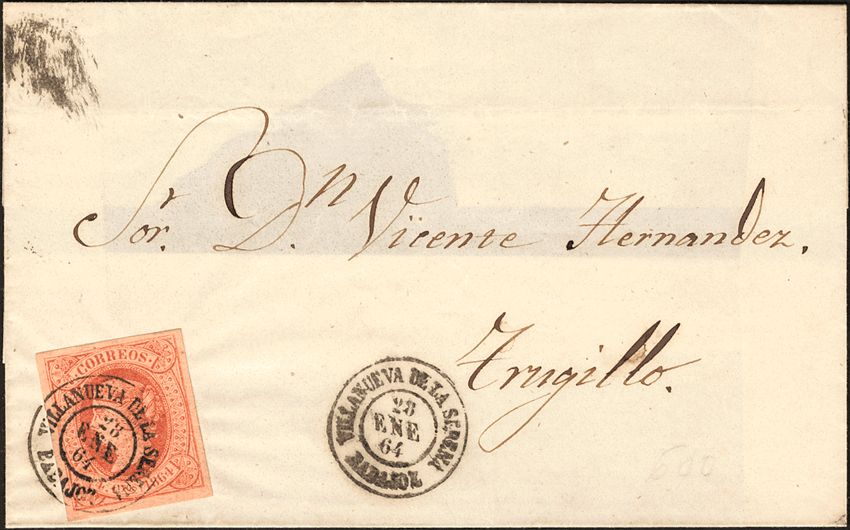 Sor. Dn. Vicente Hernandez.
Trugillo.
CORREOS.
1864
VILLANUEVA DE LA SERENA
28
ENE
64
BADAJOZ
VILLANUEVA DE LA SERENA
28
ENE
64
BADAJOZ